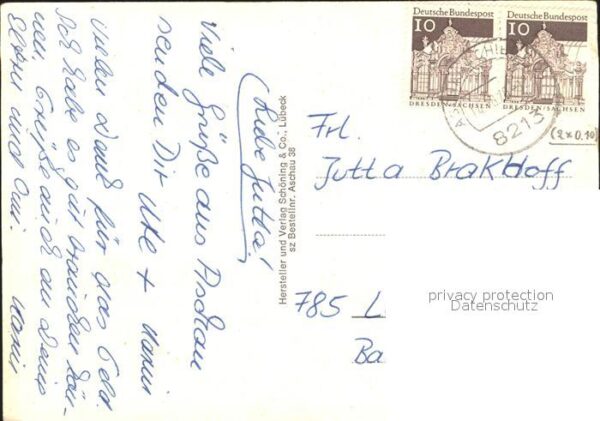 (Liebe Jutta!
Viele Grüße aus Aschau
senden Dir Ute +
Vielen Dank für das Geld
Ich habe es gut brauchen kön-
nen. Grüße auch an Deine
Eltern und Omi.
Hersteller und Verlag Schöning & Co., Lübeck
sz Bestellnr. Aschau 38
Deutsche Bundespost
10
DRESDEN/SACHSEN
Deutsche Bundespost
10
DRESDEN/SACHSEN
8213
(2x0.10)
Frl.
Jutta Brakhoff
785 L
Ba
privacy protection
Datenschutz